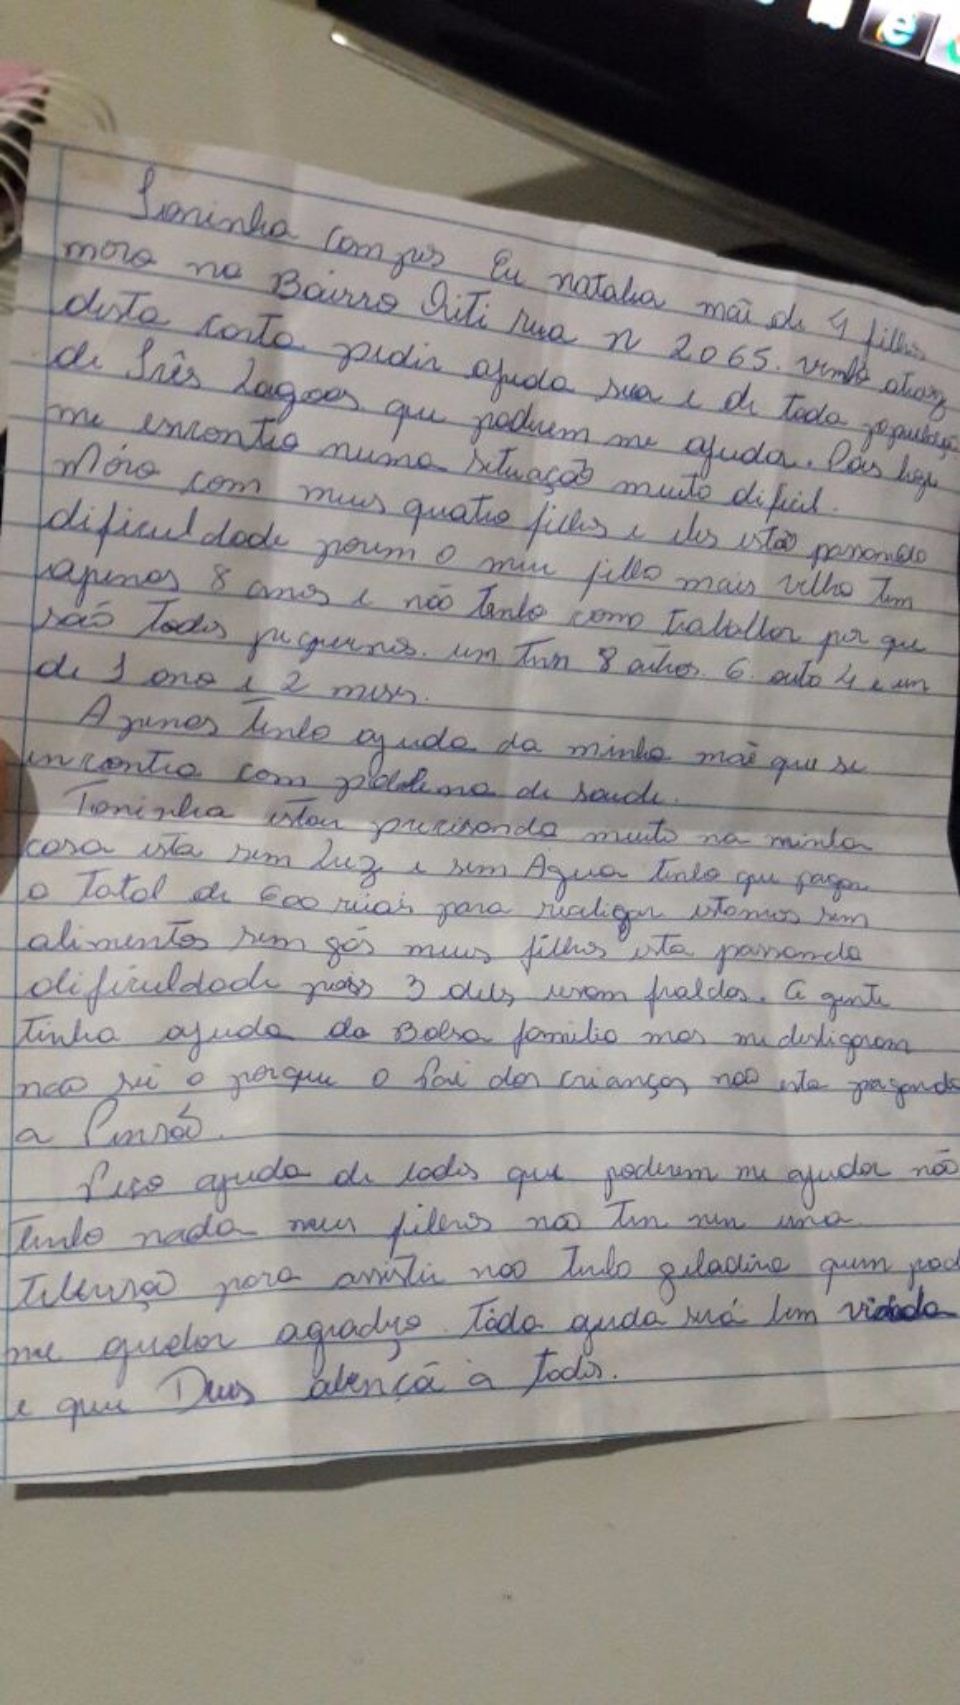 Toninha Campos Eu natalia mãe de 4 filhos
moro no Bairro Oiti rua n 2065. venho atraz
desta carta pedir ajuda sua e de toda população
de Três Lagoas que poderem me ajuda. Pois hoje
me encontro numa situação muito dificil.
Móro com meus quatro filhos e eles estão passando
dificuldade porem o meu filho mais velho tem
apenas 8 anos e não tenho como trabalhar por que
são todos pequenos. um tem 8 ainhos. 6. outo 4 e um
de 1 ano e 2 meses.
Apenas tenho ajuda da minha mãe que se
encontra com problema de saude.
Toninha estou precisando muito na minha
casa esta sem luz e sem Agua tenho que pagar
o Total de 600 riais para realigar estamos sem
alimentos sem gás meus filhos esta passando
dificuldade pois 3 deles usam fraldas. A gente
tinha ajuda da Bolsa familia mas me desligaram
nao sei o porque o Pai das crianças nao esta pagando
a Pensão.
Peço ajuda de todos que poderem me ajudar não
tenho nada meus filhos nao tem nem uma
televisão para assistir nao tenho geladira quem pod
me ajudar agradeço. Toda ajuda será bem vinda
e que Deus abençã a todos.